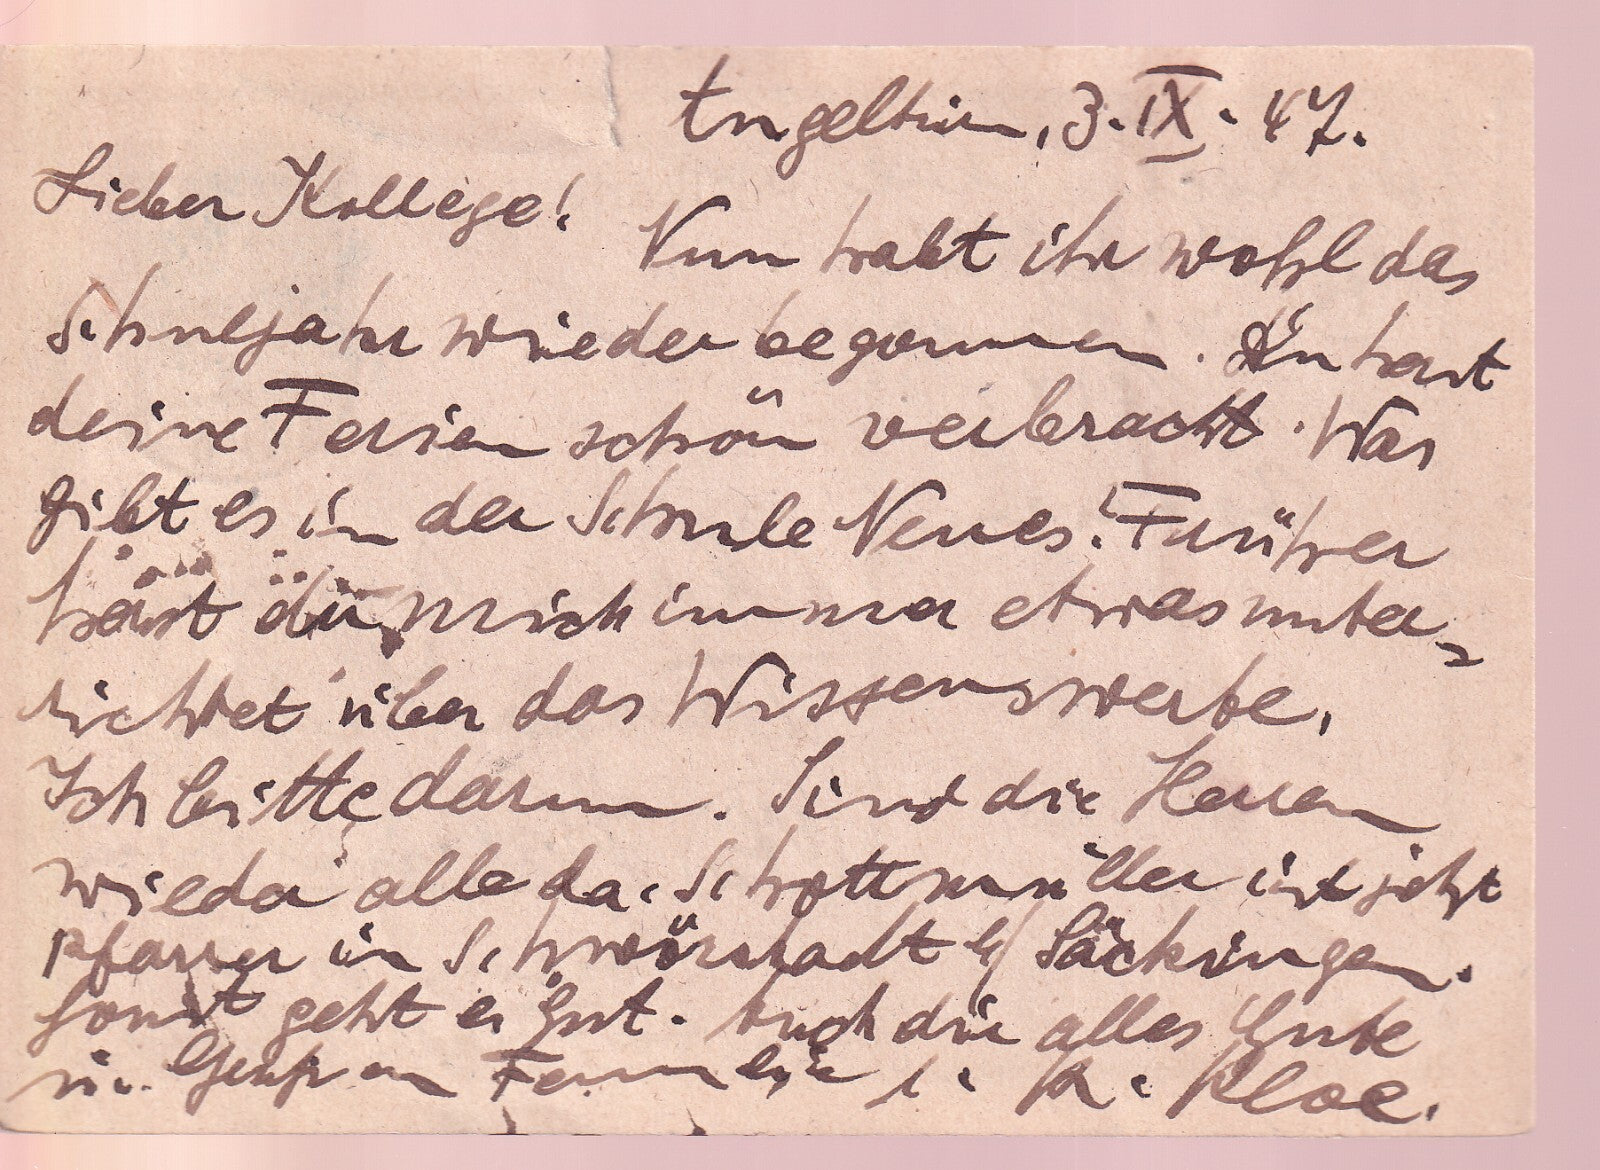 Engeltiun, 3. IX. 47.
Lieber Kollege!
Nun habt ihr wohl das
Schuljahr wieder begonnen. Du hast
deine Ferien schön verbracht. Was
gibt es in der Schule Neues? Früher
hast du mich immer etwas unter-
richtet über das Wissenswerte,
Ich bitte darum. Sind die Herren
wieder alle da. Schottmüller ist jetzt
Pfarrer in Schwörstadt b/ Säckingen.
Sonst geht es gut. Auch dir alles Gute
u. Gruß an Familie